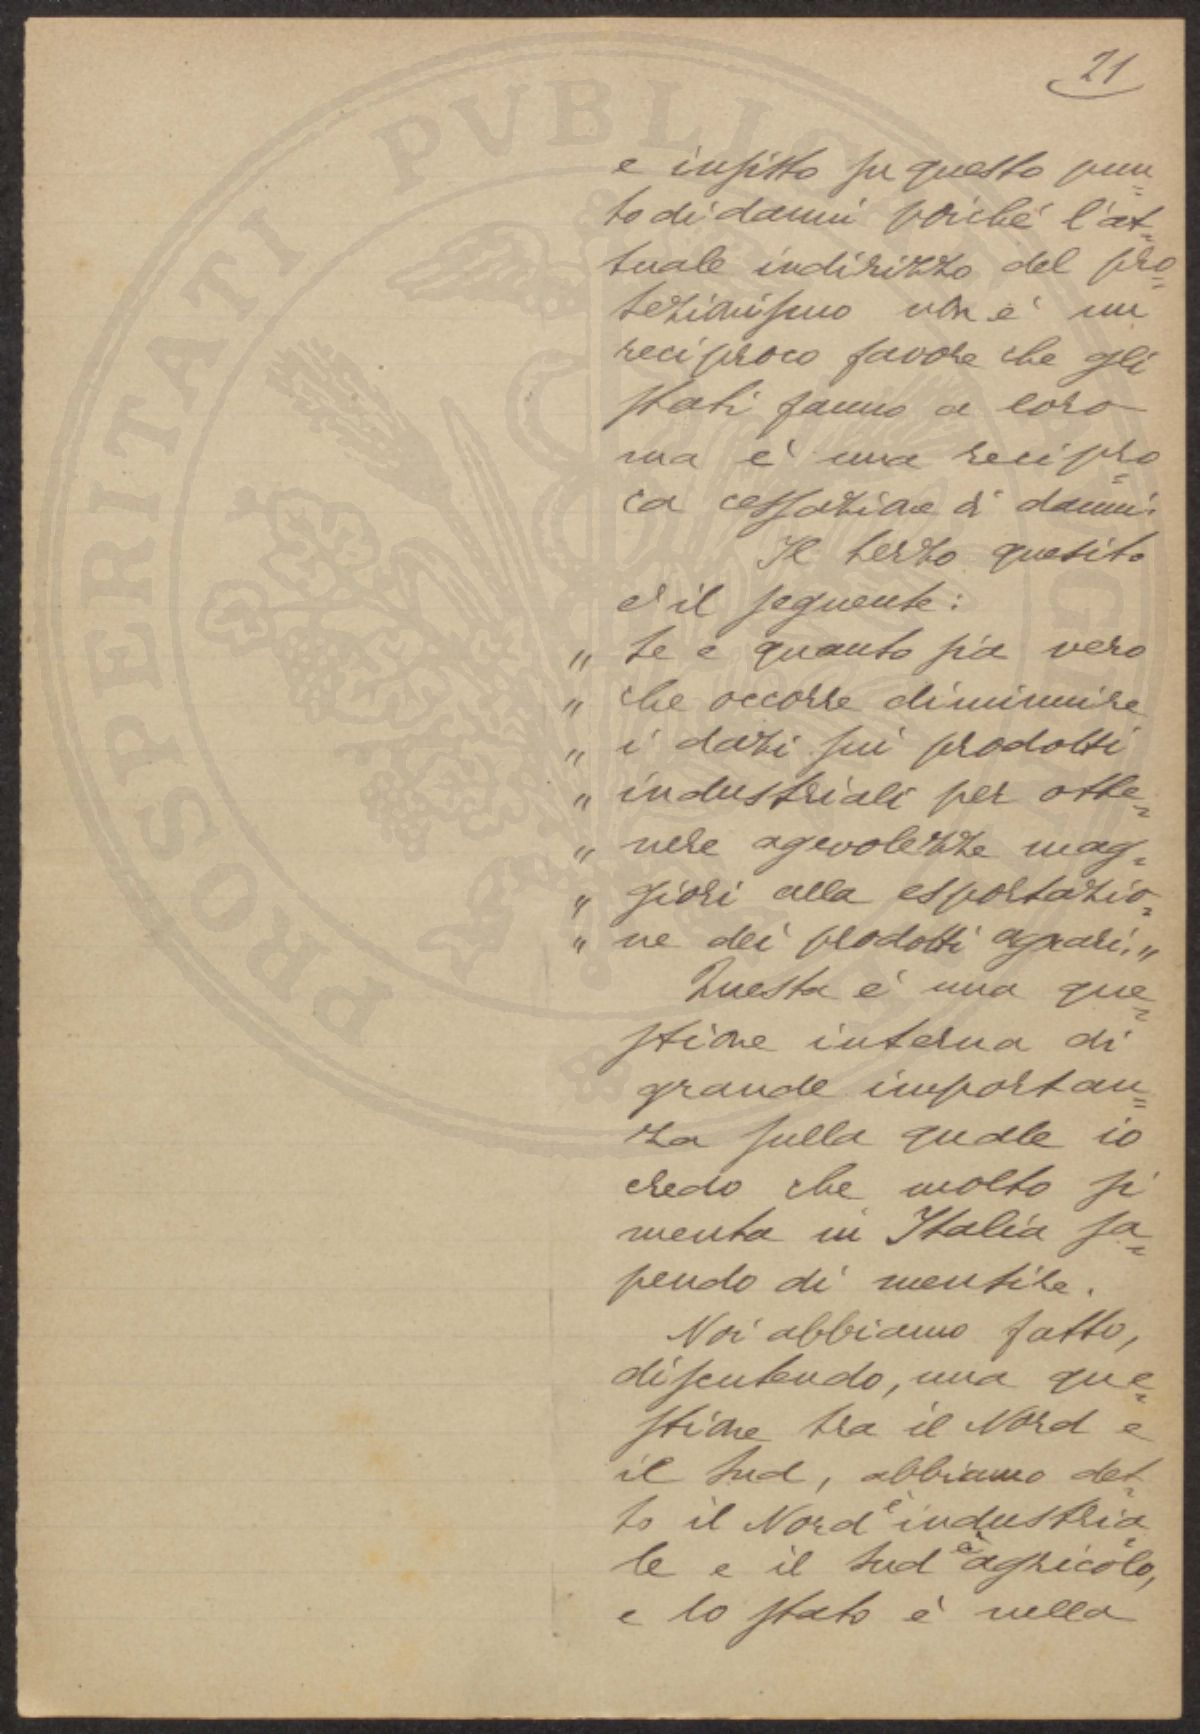 21
e insisto su questo pun=
to di danni poiché l'at=
tuale indirizzo del pro=
tezionismo non è un
reciproco favore che gli
stati fanno a loro
ma è una recipro=
ca cessazione di danni.
Il terzo quesito
è il seguente:
„ Se e quanto sia vero
„ che occorre diminuire
„ i dazi sui prodotti
„ industriali per otte=
„ nere agevolezze mag=
„ giori alla esportazio=
„ ne dei prodotti agrari. „
Questa è una que=
stione interna di
grande importan=
za sulla quale io
credo che molto si
menta in Italia sa=
pendo di mentire.
Noi abbiamo fatto,
discutendo, una que=
stione tra il Nord e
il Sud, abbiamo det=
to il Nord è industria
le e il Sud è agricolo,
e lo stato è nella
PROSPERITATI PVBLICAE